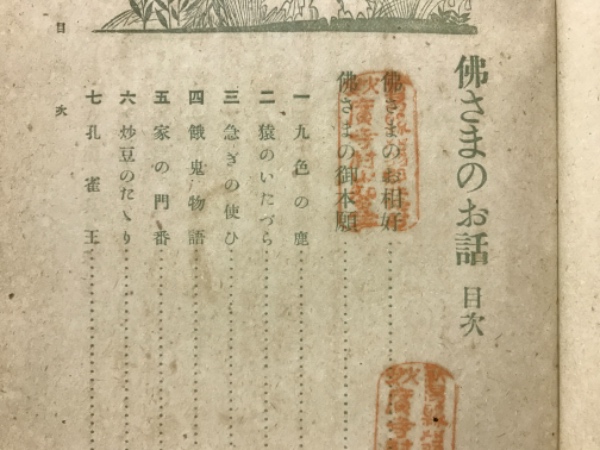 佛さまのお話 目次
佛さまのお相好
佛さまの御本願
一 九色の鹿
二 猿のいたづら
三 急ぎの使ひ
四 餓鬼物語
五 家の門番
六 炒豆のたゝり
七 孔雀王
目次